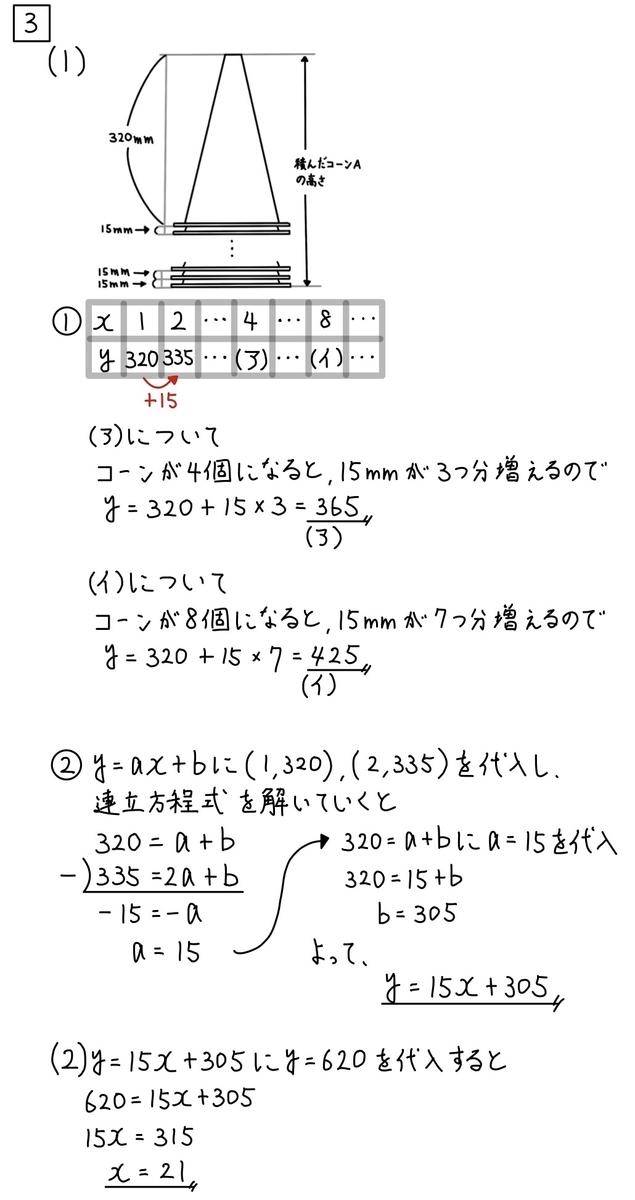 3
(1)
320mm
積んだコーンA
の高さ
15mm→
⋮
15mm→
15mm→
① x 1 2 … 4 … 8 …
y 320 335 … (ア) … (イ) …
+15
(ア)について
コーンが4個になると,15mmが3つ分増えるので
y=320+15×3=365
(ア)
(イ)について
コーンが8個になると,15mmが7つ分増えるので
y=320+15×7=425
(イ)
② y=ax+bに(1,320),(2,335)を代入し、
連立方程式を解いていくと
320=a+b
-)335=2a+b
-15=-a
a=15
320=a+bにa=15を代入
320=15+b
b=305
よって、
y=15x+305
(2)y=15x+305にy=620を代入すると
620=15x+305
15x=315
x=21